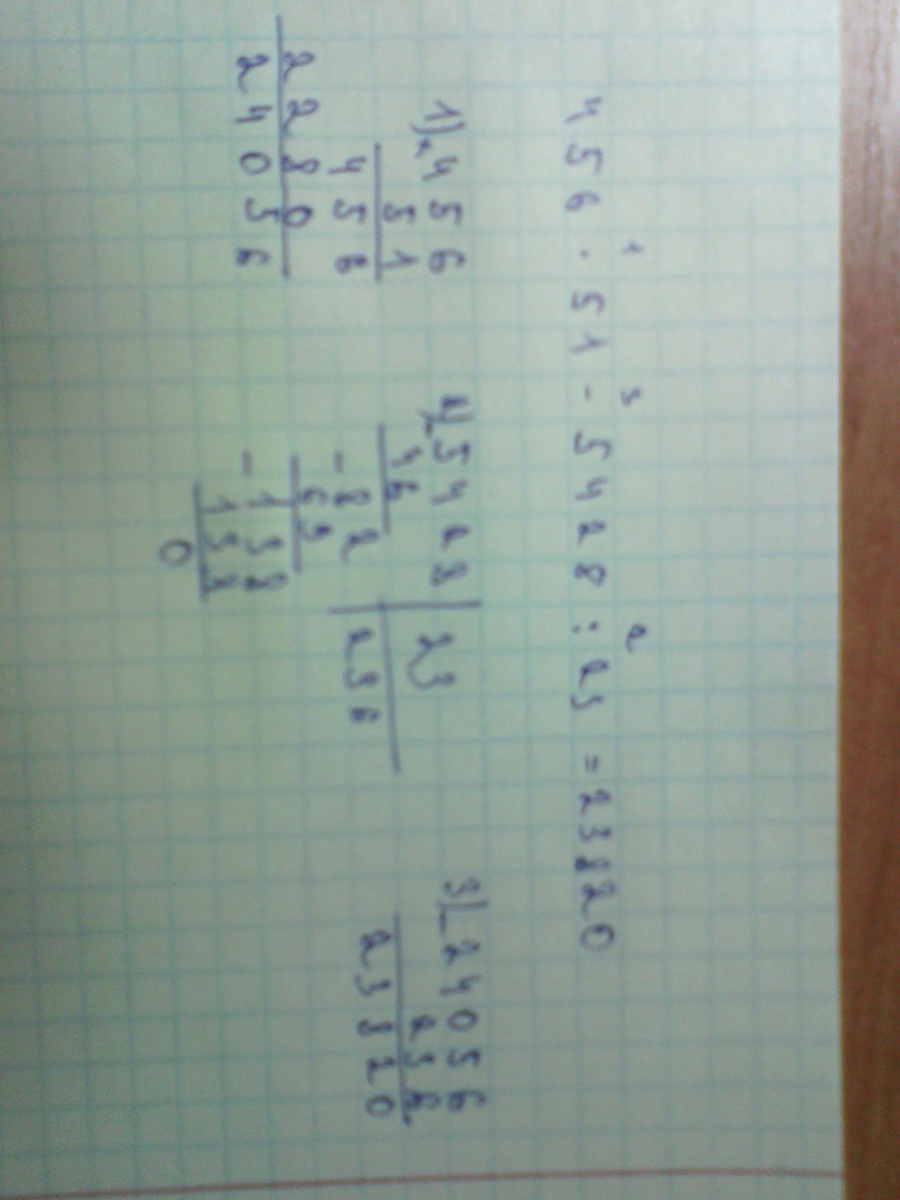 1 3 2
456 · 51 - 5428 : 23 = 23820
1) × 456
51
456
2280
24056
2) - 5428 | 23
46 | 236
- 82
69
- 138
138
0
3) - 24056
236
23820